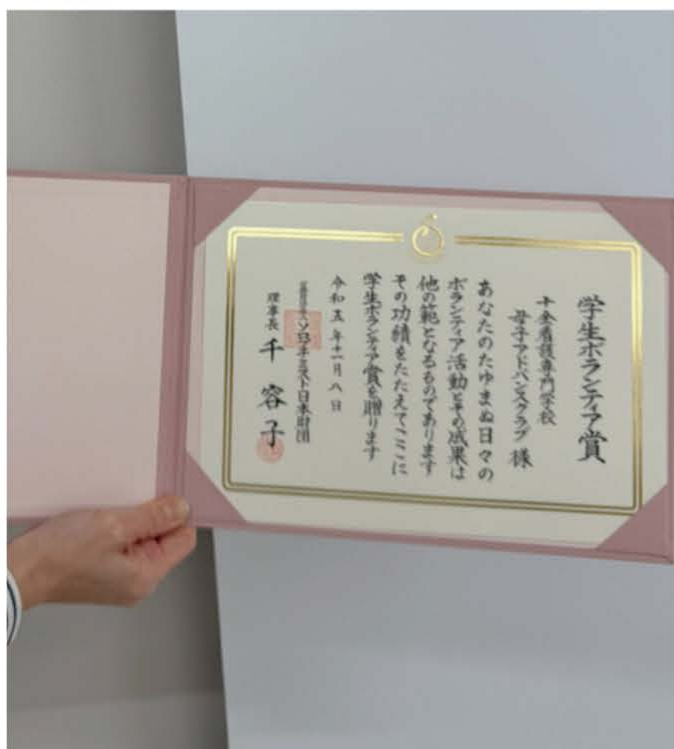 学生ボランティア賞
十全看護専門学校
母子アドバンスクラブ 様
あなたのたゆまぬ日々の
ボランティア活動とその成果は
他の範となるものであります
その功績をたたえてここに
学生ボランティア賞を贈ります
令和五年十一月八日
ソロプチミスト日本財団
理事長 千 容子